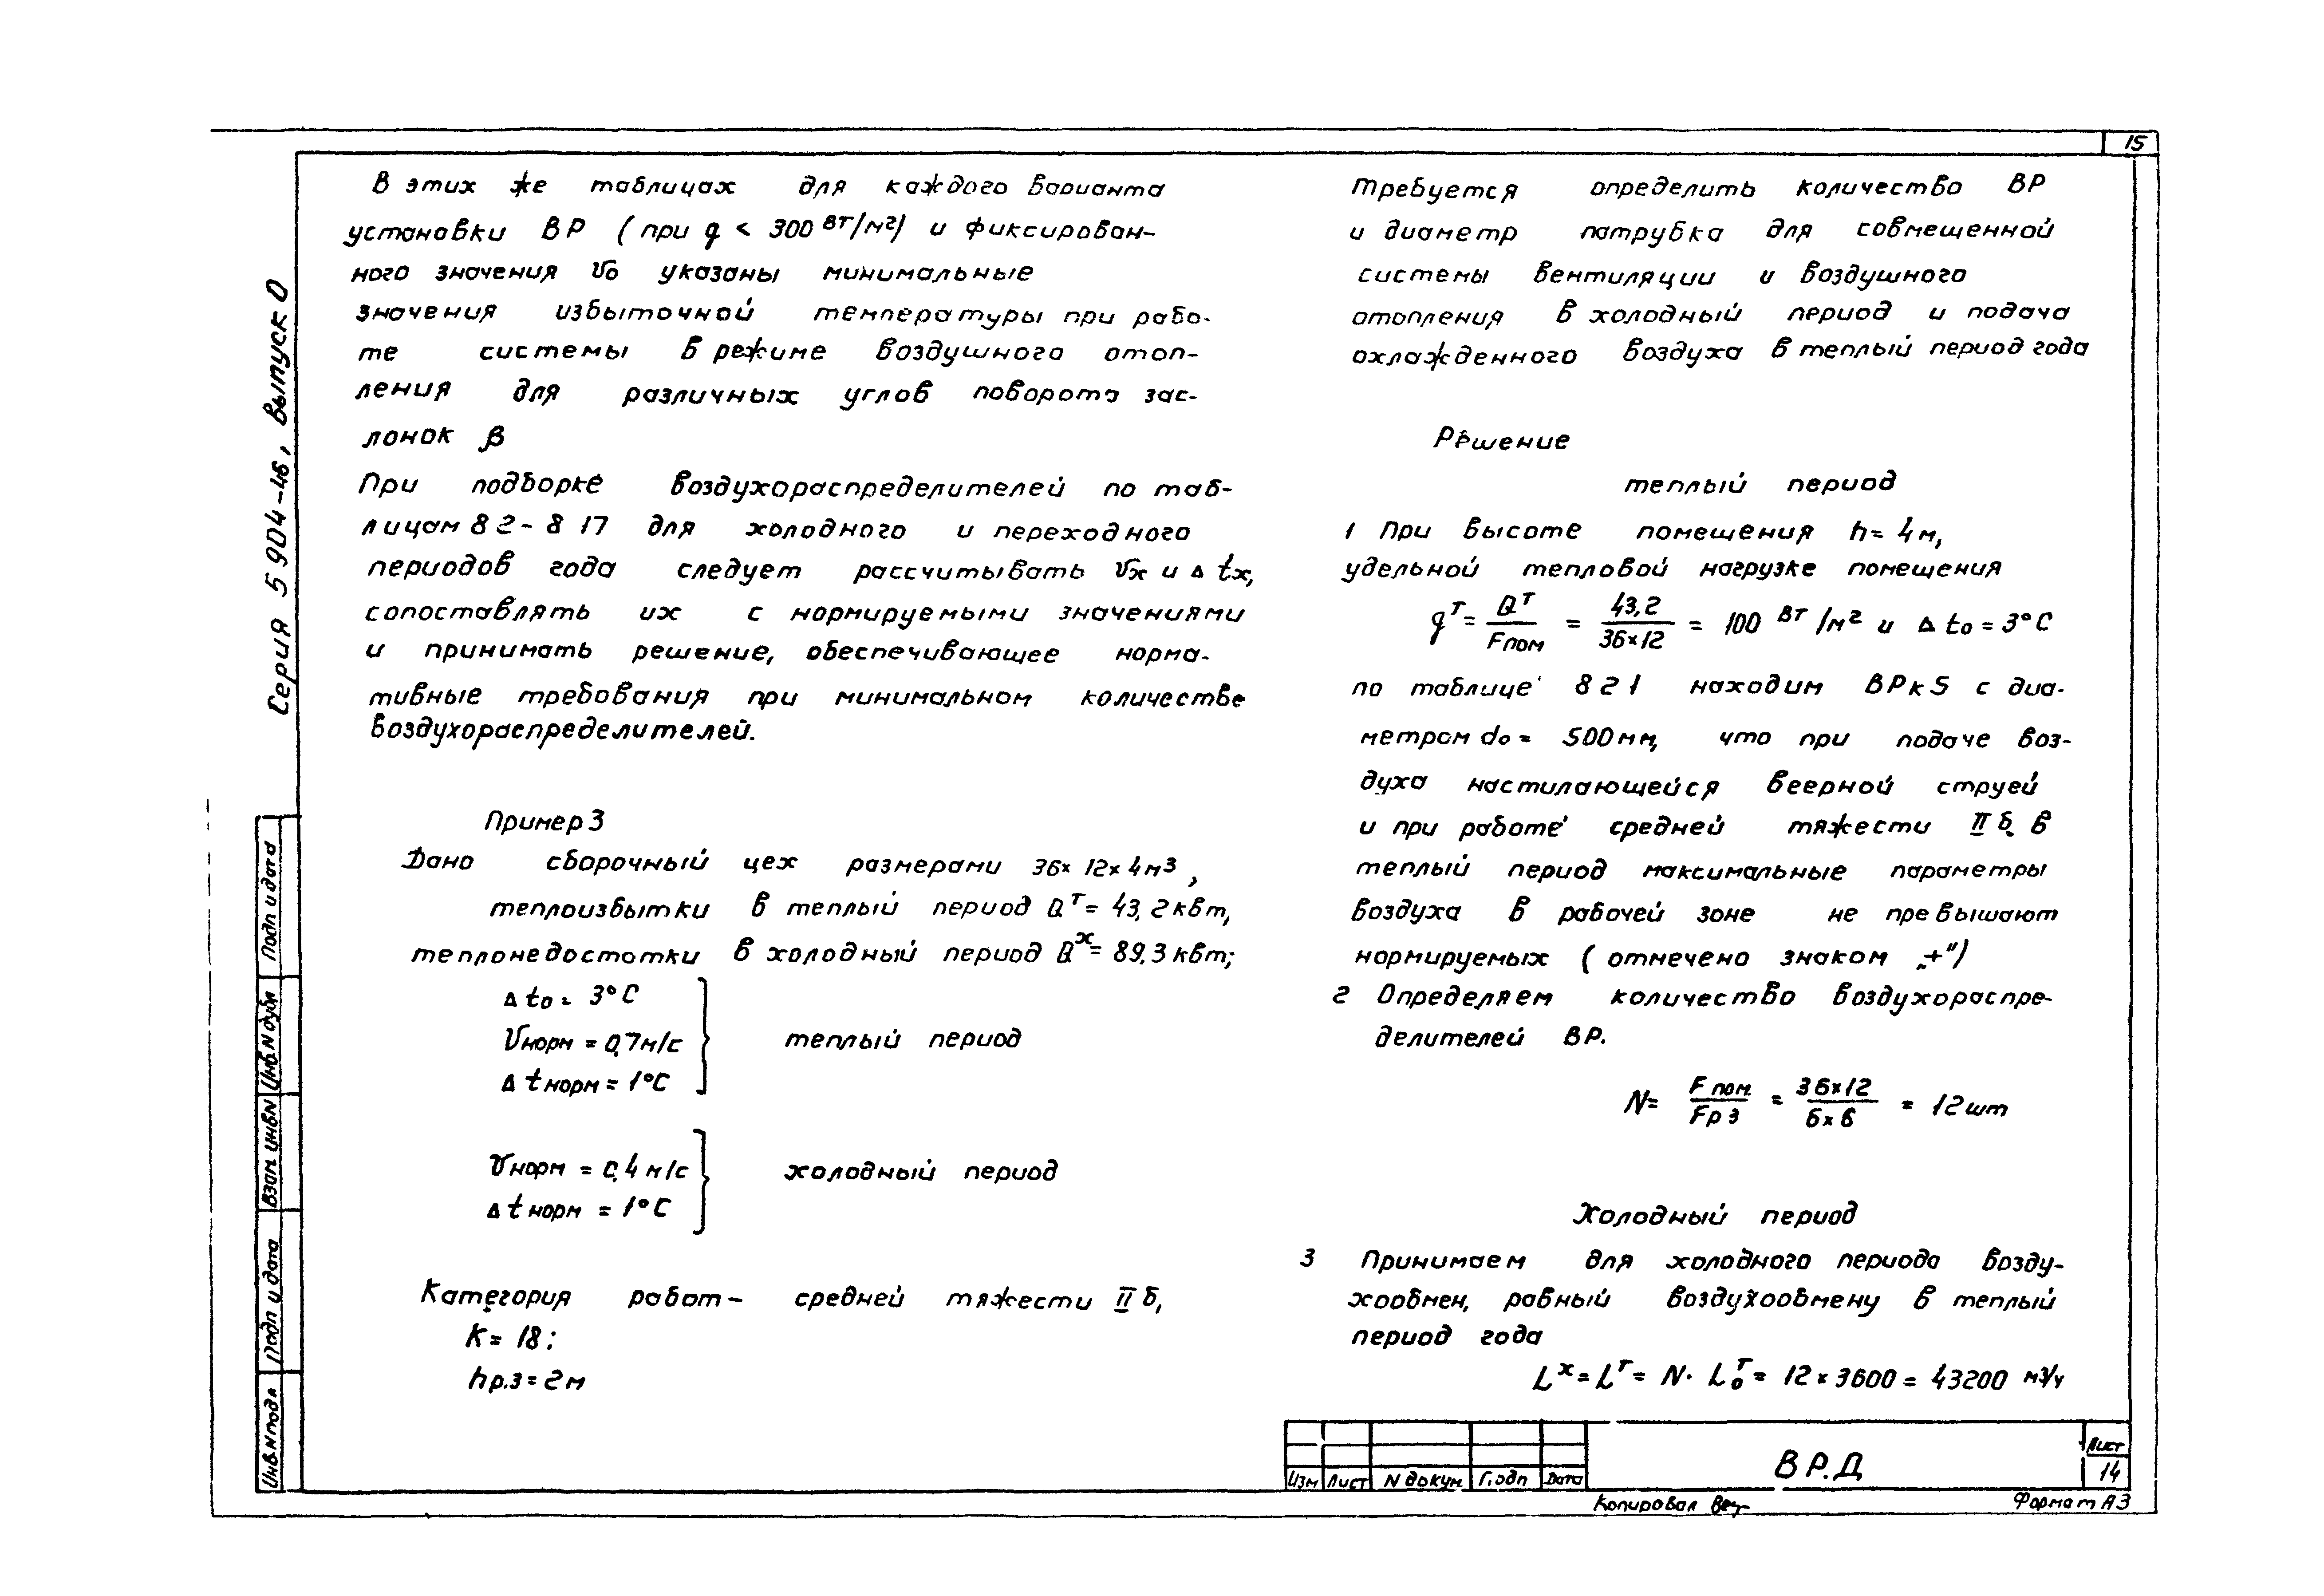 15
В этих же таблицах для каждого варианта
установки ВР (при q < 300 Вт/м²) и фиксирован-
ного значения v₀ указаны минимальные
значения избыточной температуры при рабо-
те системы в режиме воздушного отоп-
ления для различных углов поворота зас-
лонок β
При подборке воздухораспределителей по таб-
лицам 8 2 - 8 17 для холодного и переходного
периодов года следует рассчитывать vx и Δ tx,
сопоставлять их с нормируемыми значениями
и принимать решение, обеспечивающее норма-
тивные требования при минимальном количестве
воздухораспределителей.
Пример 3
Дано сборочный цех размерами 36×12×4м³,
теплоизбытки в теплый период Qᵀ = 43,2 квт,
теплонедостатки в холодный период Qˣ = 89,3 квт;
Δ t₀ = 3°С
vнорм = 0,7м/с
Δ tнорм = 1°С
теплый период
vнорм = 0,4 м/с
Δ tнорм = 1°С
холодный период
Категория работ - средней тяжести II б,
К = 18;
hр.з = 2 м
Требуется определить количество ВР
и диаметр патрубка для совмещенной
системы вентиляции и воздушного
отопления в холодный период и подача
охлажденного воздуха в теплый период года
Решение
теплый период
1 При высоте помещения h = 4 м,
удельной тепловой нагрузке помещения
qᵀ = Qᵀ / Fпом = 43,2 / 36×12 = 100 Вт/м² и Δ t₀ = 3°С
по таблице 8 2 1 находим ВРк5 с диа-
метром d₀ = 500 мм, что при подаче воз-
духа настилающейся веерной струей
и при работе средней тяжести II б в
теплый период максимальные параметры
воздуха в рабочей зоне не превышают
нормируемых (отмечено знаком „+")
2 Определяем количество воздухораспре-
делителей ВР.
N = Fпом. / Fр з = 36×12 / 6×6 = 12 шт
Холодный период
3 Принимаем для холодного периода возду-
хообмен, равный воздухообмену в теплый
период года
Lˣ = Lᵀ = N · L₀ᵀ = 12 × 3600 = 43200 м³/ч
Изм Лист N докум. Подп Дата
ВР.Д
Лист
14
Копировал
Формат А3
Серия 5 904-46, выпуск 0
Подп и дата
Инв N дубл
Взам инв N
Подп и дата
Инв N подл